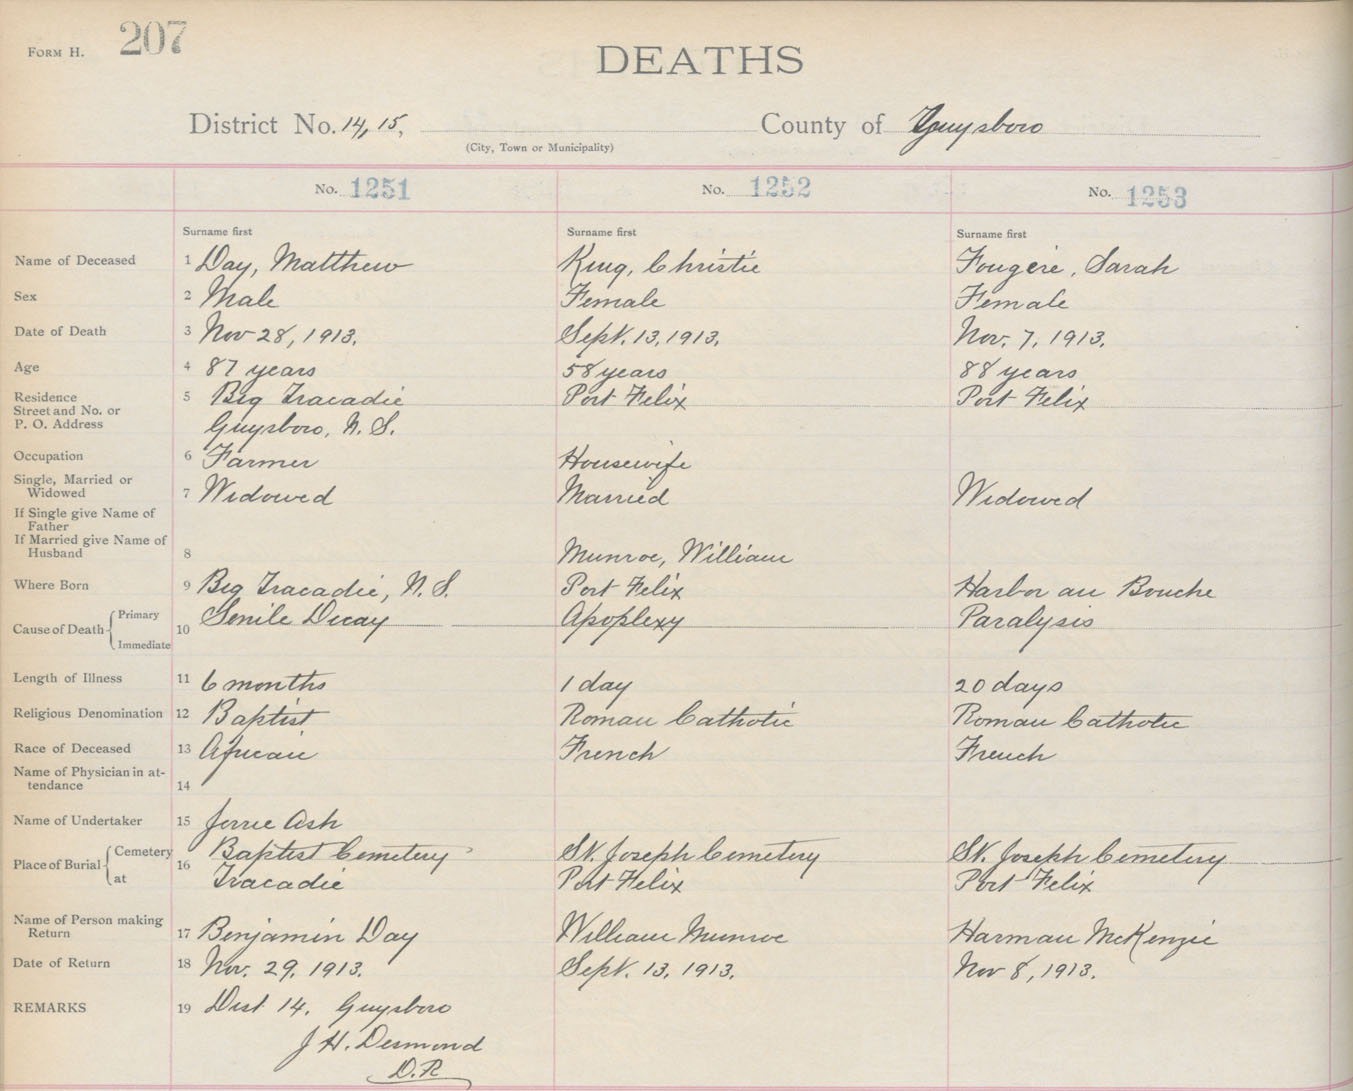 FORM H. 207
DEATHS
District No. 14, 15, County of Guysboro
(City, Town or Municipality)
No. 1251 No. 1252 No. 1253
Surname first Surname first Surname first
Name of Deceased 1 Day, Matthew King, Christie Fougère, Sarah
Sex 2 Male Female Female
Date of Death 3 Nov 28, 1913. Sept. 13, 1913. Nov. 7, 1913.
Age 4 87 years 58 years 88 years
Residence 5 Big Tracadie Port Felix Port Felix
Street and No. or
P. O. Address Guysboro, N. S.
Occupation 6 Farmer Housewife
Single, Married or
Widowed 7 Widowed Married Widowed
If Single give Name of
Father
If Married give Name of
Husband 8 Munroe, William
Where Born 9 Big Tracadie, N. S. Port Felix Harbor au Bouche
Cause of Death Primary 10 Senile Decay Apoplexy Paralysis
Immediate
Length of Illness 11 6 months 1 day 20 days
Religious Denomination 12 Baptist Roman Catholic Roman Catholic
Race of Deceased 13 African French French
Name of Physician in at-
tendance 14
Name of Undertaker 15 Ash
Place of Burial Cemetery 16 Baptist Cemetery St. Joseph Cemetery St. Joseph Cemetery
at Tracadie Port Felix Port Felix
Name of Person making
Return 17 Benjamin Day William Munroe Harman McKenzie
Date of Return 18 Nov. 29, 1913. Sept. 13, 1913. Nov 8, 1913.
REMARKS 19 Dist 14. Guysboro
J H. Desmond
D. R